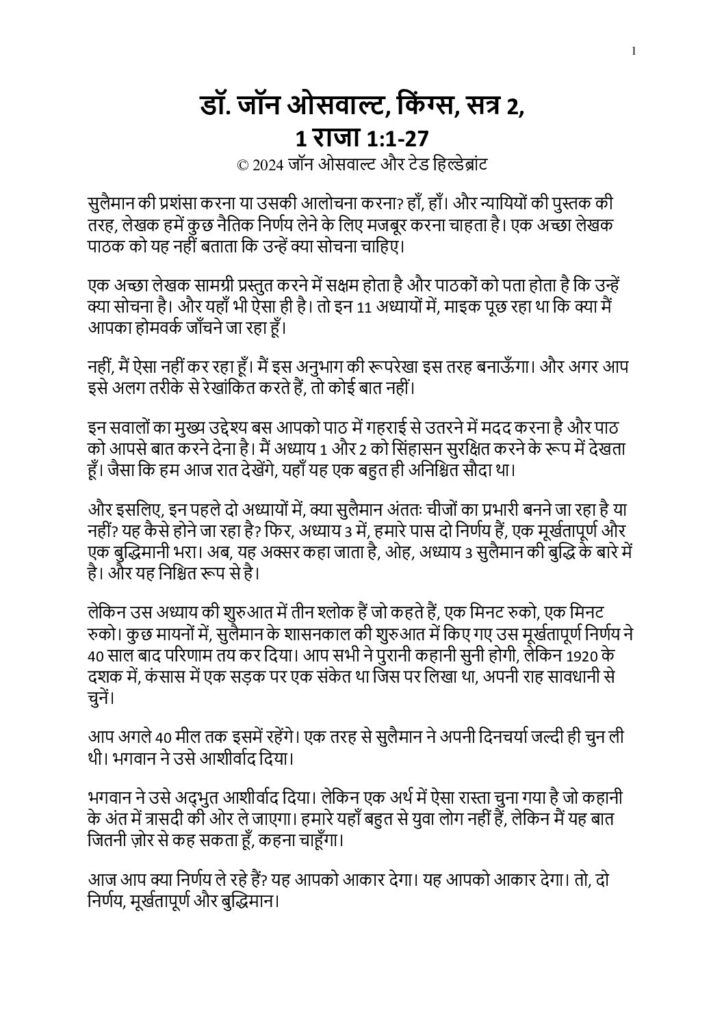 1
डॉ. जॉन ओसवाल्ट, किंग्स, सत्र 2,
1 राजा 1:1-27
© 2024 जॉन ओसवाल्ट और टेड हिल्डेब्रांट
सुलैमान की प्रशंसा करना या उसकी आलोचना करना? हाँ, हाँ। और न्यायियों की पुस्तक की
तरह, लेखक हमें कुछ नैतिक निर्णय लेने के लिए मजबूर करना चाहता है। एक अच्छा लेखक
पाठक को यह नहीं बताता कि उन्हें क्या सोचना चाहिए।
एक अच्छा लेखक सामग्री प्रस्तुत करने में सक्षम होता है और पाठकों को पता होता है कि उन्हें
क्या सोचना है। और यहाँ भी ऐसा ही है। तो इन 11 अध्यायों में, माइक पूछ रहा था कि क्या मैं
आपका होमवर्क जाँचने जा रहा हूँ।
नहीं, मैं ऐसा नहीं कर रहा हूँ। मैं इस अनुभाग की रूपरेखा इस तरह बनाऊँगा। और अगर आप
इसे अलग तरीके से रेखांकित करते हैं, तो कोई बात नहीं।
इन सवालों का मुख्य उद्देश्य बस आपको पाठ में गहराई से उतरने में मदद करना है और पाठ
को आपसे बात करने देना है। मैं अध्याय 1 और 2 को सिंहासन सुरक्षित करने के रूप में देखता
हूँ। जैसा कि हम आज रात देखेंगे, यहाँ यह एक बहुत ही अनिश्चित सौदा था।
और इसलिए, इन पहले दो अध्यायों में, क्या सुलैमान अंततः चीजों का प्रभारी बनने जा रहा है या
नहीं? यह कैसे होने जा रहा है? फिर, अध्याय 3 में, हमारे पास दो निर्णय हैं, एक मूर्खतापूर्ण और
एक बुद्धिमानी भरा। अब, यह अक्सर कहा जाता है, ओह, अध्याय 3 सुलैमान की बुद्धि के बारे में
है। और यह निश्चित रूप से है।
लेकिन उस अध्याय की शुरुआत में तीन श्लोक हैं जो कहते हैं, एक मिनट रुको, एक मिनट
रुको। कुछ मायनों में, सुलैमान के शासनकाल की शुरुआत में किए गए उस मूर्खतापूर्ण निर्णय ने
40 साल बाद परिणाम तय कर दिया। आप सभी ने पुरानी कहानी सुनी होगी, लेकिन 1920 के
दशक में, कंसास में एक सड़क पर एक संकेत था जिस पर लिखा था, अपनी राह सावधानी से
चुनें।
आप अगले 40 मील तक इसमें रहेंगे। एक तरह से सुलैमान ने अपनी दिनचर्या जल्दी ही चुन ली
थी। भगवान ने उसे आशीर्वाद दिया।
भगवान ने उसे अद्भुत आशीर्वाद दिया। लेकिन एक अर्थ में ऐसा रास्ता चुना गया है जो कहानी
के अंत में त्रासदी की ओर ले जाएगा। हमारे यहाँ बहुत से युवा लोग नहीं हैं, लेकिन मैं यह बात
जितनी ज़ोर से कह सकता हूँ, कहना चाहूँगा।
आज आप क्या निर्णय ले रहे हैं? यह आपको आकार देगा। यह आपको आकार देगा। तो, दो
निर्णय, मूर्खतापूर्ण और बुद्धिमान।